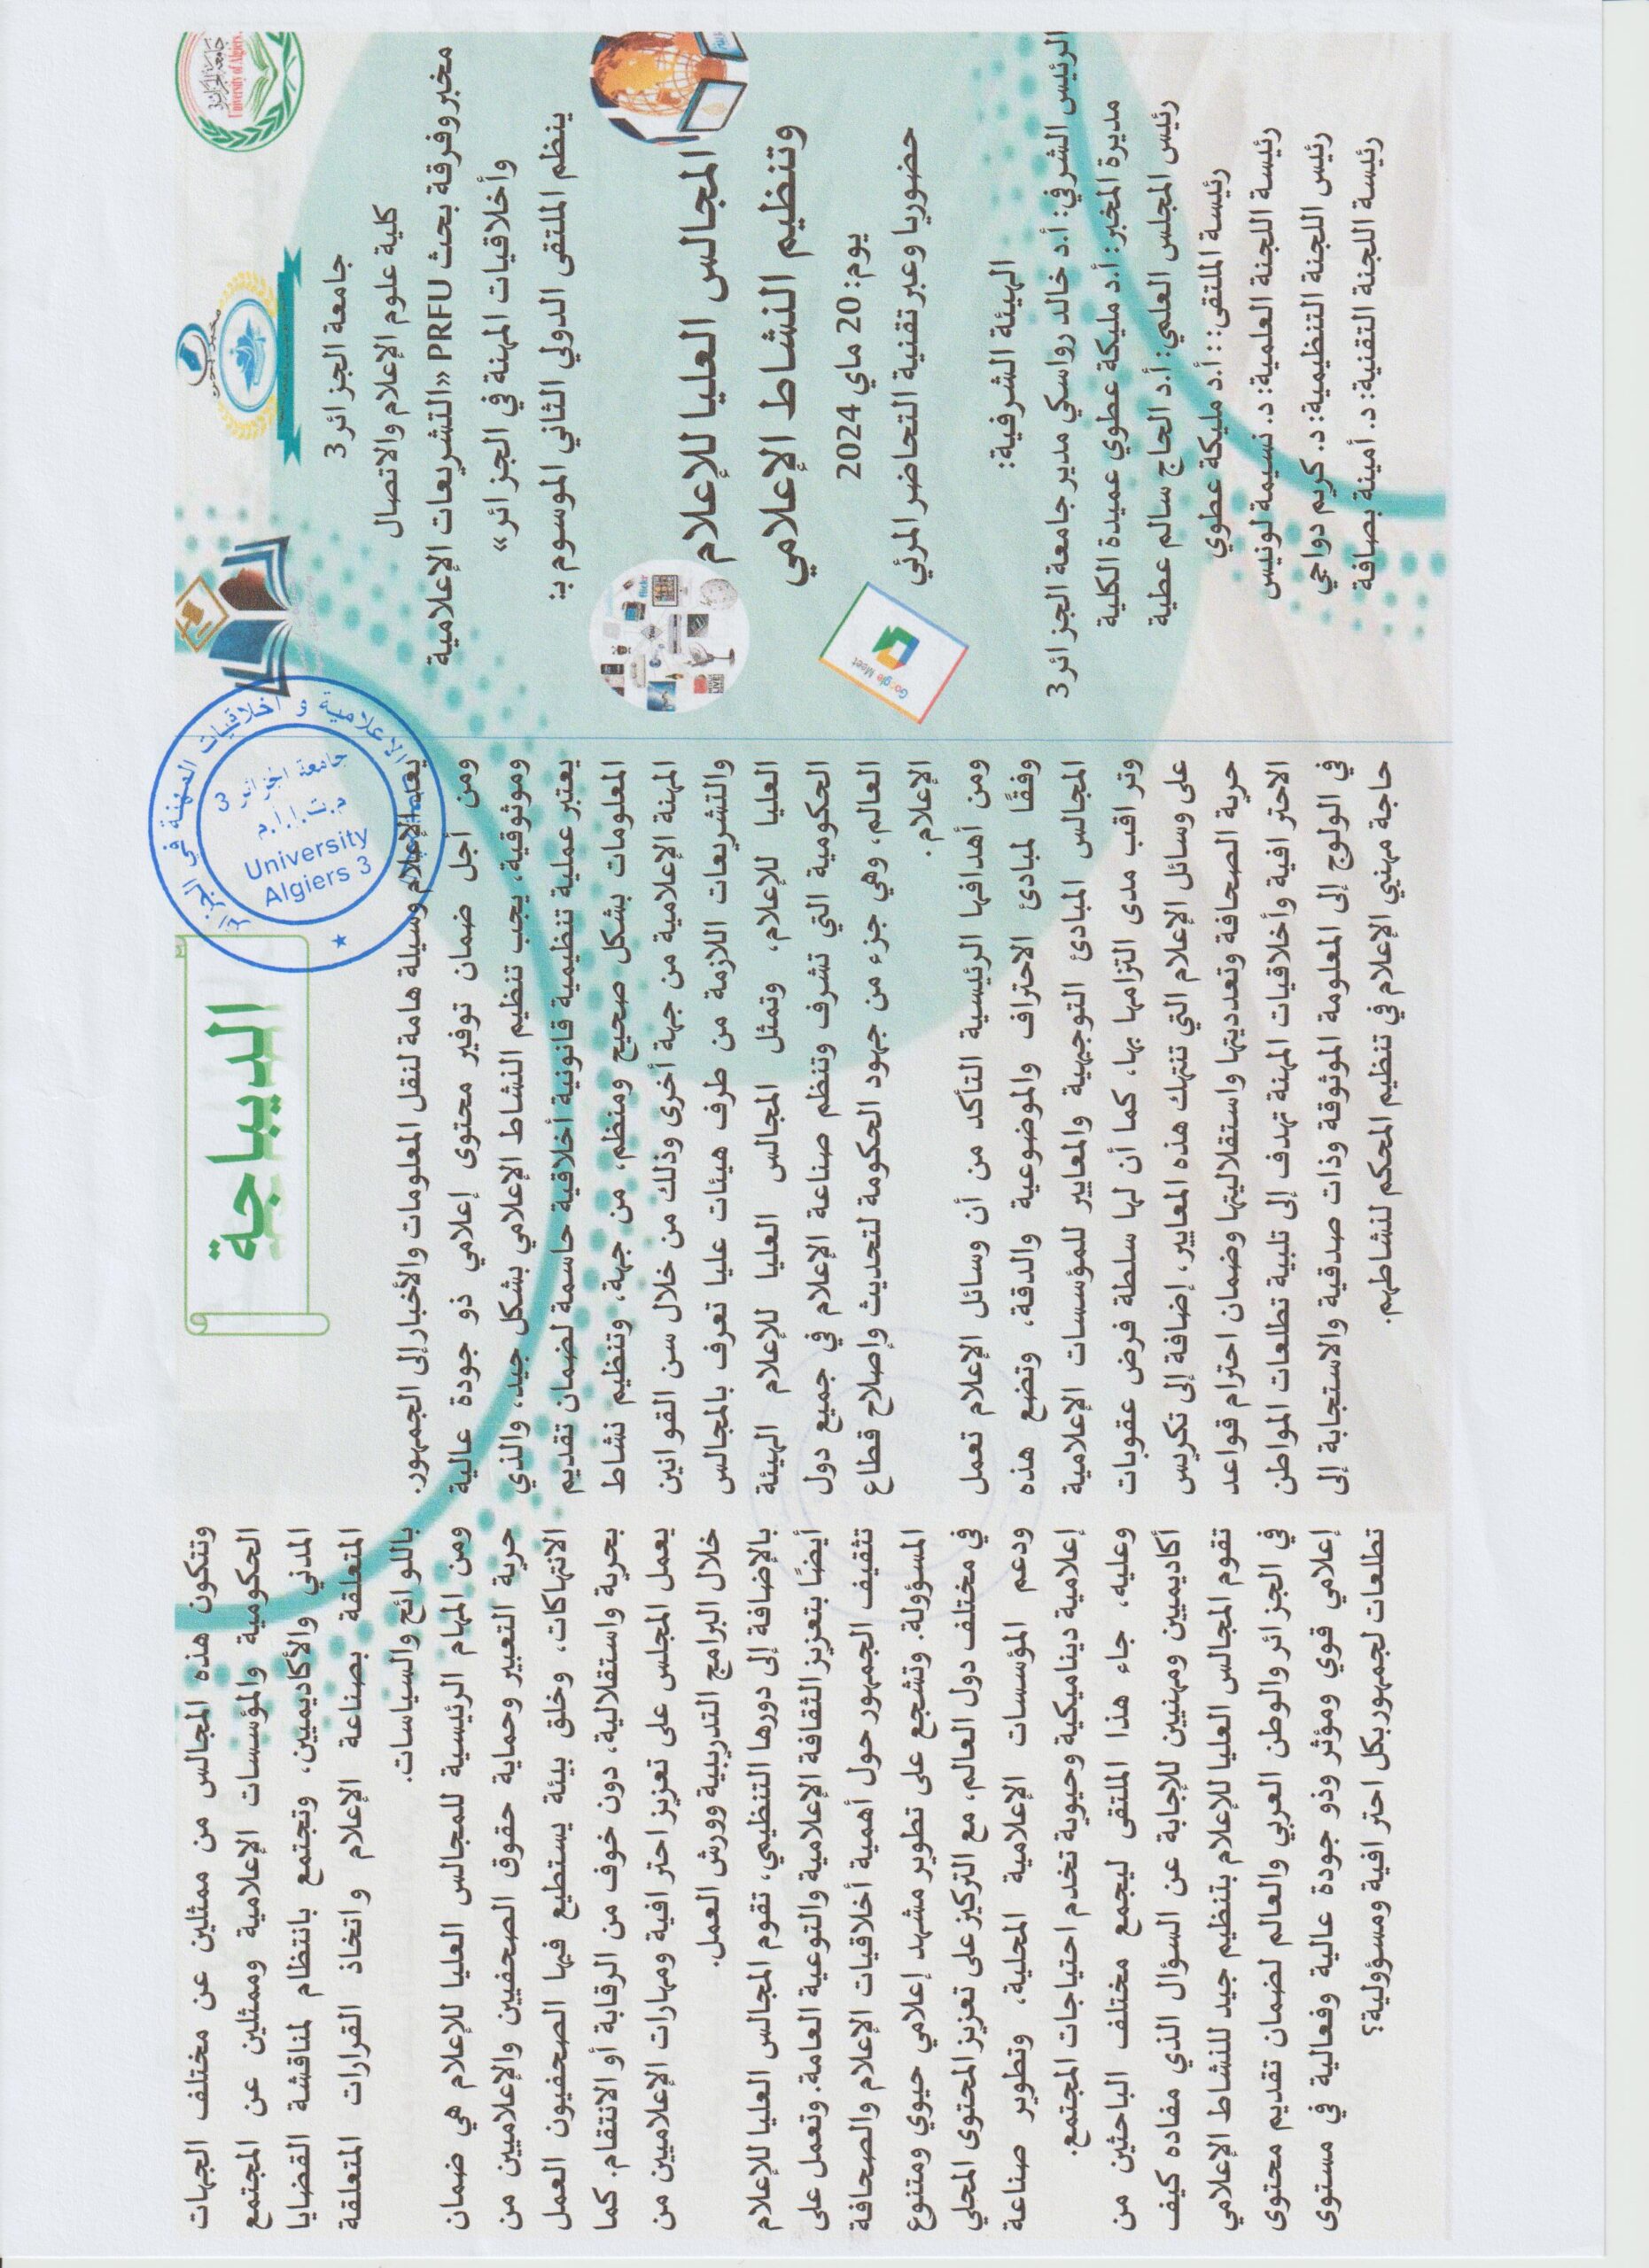 جامعة الجزائر 3
كلية علوم الإعلام والاتصال
مخبر وفرقة بحث PRFU «التشريعات الإعلامية
وأخلاقيات المهنة في الجزائر»
ينظم الملتقى الدولي الثاني الموسوم بـ:
المجالس العليا للإعلام
وتنظيم النشاط الإعلامي
يوم: 20 ماي 2024
حضوريا وعبر تقنية التحاضر المرئي
Google Meet
الهيئة الشرفية:
الرئيس الشرفي: أ.د خالد رواسكي مدير جامعة الجزائر 3
مديرة المخبر: أ.د مليكة عطوي عميدة الكلية
رئيس المجلس العلمي: أ.د الحاج سالم عطية
رئيسة الملتقى: : أ.د مليكة عطوي
رئيسة اللجنة العلمية: د. نسيمة لونيس
رئيس اللجنة التنظيمية: د. كريم دواجي
رئيسة اللجنة التقنية: د. أمينة بصافة
الإعلامية و أخلاقيات المهنة في الجزائر
جامعة الجزائر 3
University
Algiers 3
الديباجة
يعد الإعلام وسيلة هامة لنقل المعلومات والأخبار إلى الجمهور.
ومن أجل ضمان توفير محتوى إعلامي ذو جودة عالية
وموثوقية، يجب تنظيم النشاط الإعلامي بشكل جيد، والذي
يعتبر عملية تنظيمية قانونية أخلاقية حاسمة لضمان تقديم
المعلومات بشكل صحيح ومنظم، من جهة، وتنظيم نشاط
المهنة الإعلامية من جهة أخرى وذلك من خلال سن القوانين
والتشريعات اللازمة من طرف هيئات عليا تعرف بالمجالس
العليا للإعلام، وتمثل المجالس العليا للإعلام الهيئة
الحكومية التي تشرف وتنظم صناعة الإعلام في جميع دول
العالم، وهي جزء من جهود الحكومة لتحديث وإصلاح قطاع
الإعلام.
ومن أهدافها الرئيسية التأكد من أن وسائل الإعلام تعمل
وفقًا لمبادئ الاحتراف والموضوعية والدقة، وتضع هذه
المجالس المبادئ التوجيهية والمعايير للمؤسسات الإعلامية
وتراقب مدى التزامها بها، كما أن لها سلطة فرض عقوبات
على وسائل الإعلام التي تنتهك هذه المعايير، إضافة إلى تكريس
حرية الصحافة وتعدديتها واستقلاليتها وضمان احترام قواعد
الاحترافية وأخلاقيات المهنة تهدف إلى تلبية تطلعات المواطن
في الولوج إلى المعلومة الموثوقة وذات صدقية والاستجابة إلى
حاجة مهنيي الإعلام في تنظيم المحكم لنشاطهم.
وتتكون هذه المجالس من ممثلين عن مختلف الجهات
الحكومية والمؤسسات الإعلامية وممثلين عن المجتمع
المدني والأكاديميين، وتجتمع بانتظام لمناقشة القضايا
المتعلقة بصناعة الإعلام واتخاذ القرارات المتعلقة
باللوائح والسياسات.
ومن المهام الرئيسية للمجالس العليا للإعلام هي ضمان
حرية التعبير وحماية حقوق الصحفيين والإعلاميين من
الانتهاكات، وخلق بيئة يستطيع فيها الصحفيون العمل
بحرية واستقلالية، دون خوف من الرقابة أو الانتقام. كما
يعمل المجلس على تعزيز احترافية ومهارات الإعلاميين من
خلال البرامج التدريبية وورش العمل.
بالإضافة إلى دورها التنظيمي، تقوم المجالس العليا للإعلام
أيضًا بتعزيز الثقافة الإعلامية والتوعية العامة. وتعمل على
تثقيف الجمهور حول أهمية أخلاقيات الإعلام والصحافة
المسؤولة. وتشجع على تطوير مشهد إعلامي حيوي ومتنوع
في مختلف دول العالم، مع التركيز على تعزيز المحتوى المحلي
ودعم المؤسسات الإعلامية المحلية، وتطوير صناعة
إعلامية ديناميكية وحيوية تخدم احتياجات المجتمع.
وعليه، جاء هذا الملتقى ليجمع مختلف الباحثين من
أكاديميين ومهنيين للإجابة عن السؤال الذي مفاده كيف
تقوم المجالس العليا للإعلام بتنظيم جيد للنشاط الإعلامي
في الجزائر والوطن العربي والعالم لضمان تقديم محتوى
إعلامي قوي ومؤثر وذو جودة عالية وفعالية في مستوى
تطلعات لجمهور بكل احترافية ومسؤولية؟